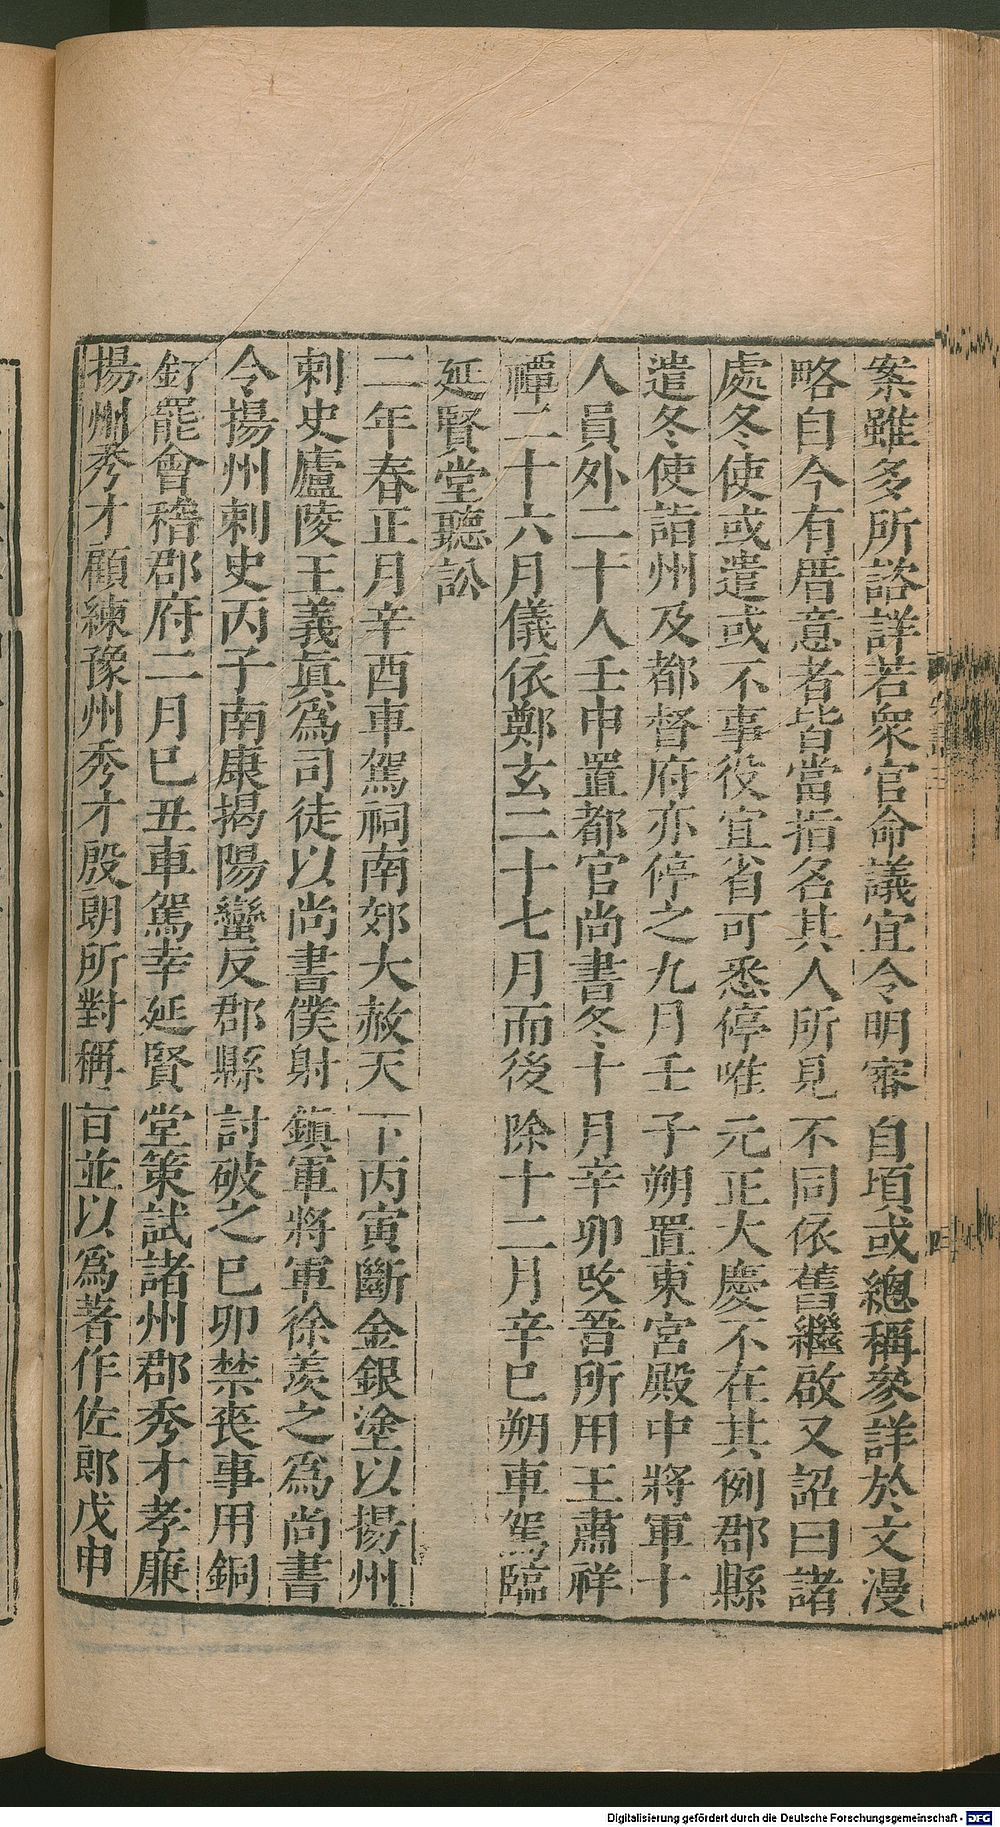 案雖多所諮詳若衆官命議宜令明審自頃或總稱參詳於文漫
略自今有厝意者皆當指名其人所見不同依舊繼啟又詔曰諸
處冬使或遣或不事役宜省可悉停唯元正大慶不在其例郡縣
遣冬使詣州及都督府亦停之九月壬子朔置東宮殿中將軍十
人員外二十人壬申置都官尚書冬十月辛卯改吾所用王肅祥
禫二十六月儀依鄭玄二十七月而後除十二月辛巳朔車駕臨
延賢堂聽訟
二年春正月辛酉車駕祠南郊大赦天下丙寅斷金銀塗以揚州
刺史廬陵王義眞爲司徒以尚書僕射鎭軍將軍徐羨之爲尚書
令揚州刺史丙子南康揭陽蠻反郡縣討破之己卯禁喪事用銅
釘罷會稽郡府二月己丑車駕幸延賢堂策試諸州郡秀才孝廉
揚州秀才顧練豫州秀才殷朗所對稱旨並以爲著作佐郎戊申
Digitalisierung gefördert durch die Deutsche Forschungsgemeinschaft - DFG